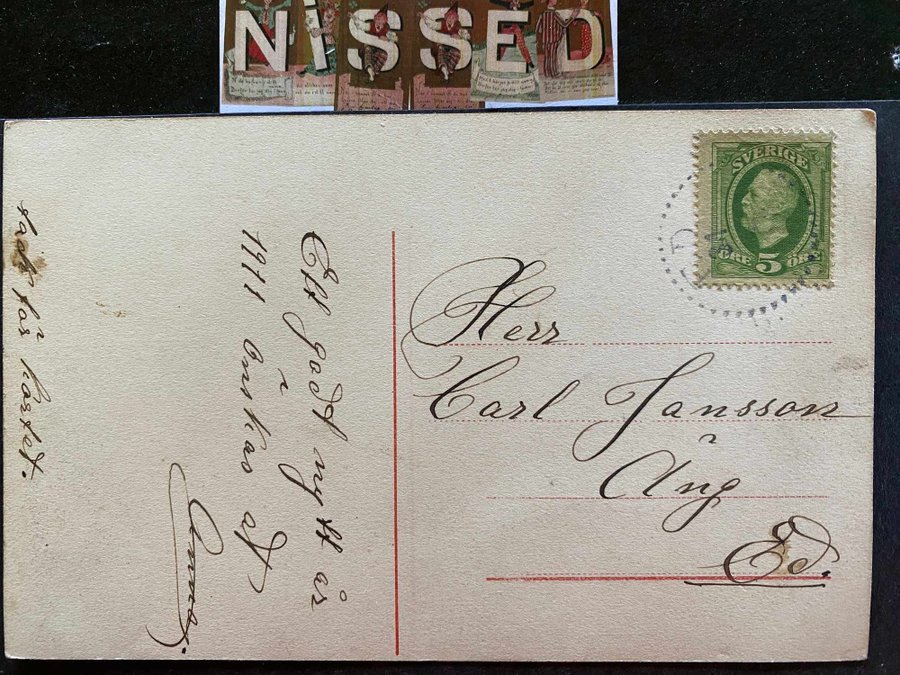 NISSED
SVERIGE
ÖRE 5 ÖRE
Herr
Carl Jansson
Äng
Ed.
Ett godt nytt år
1911 önskas af
Anna.
tack för kortet.